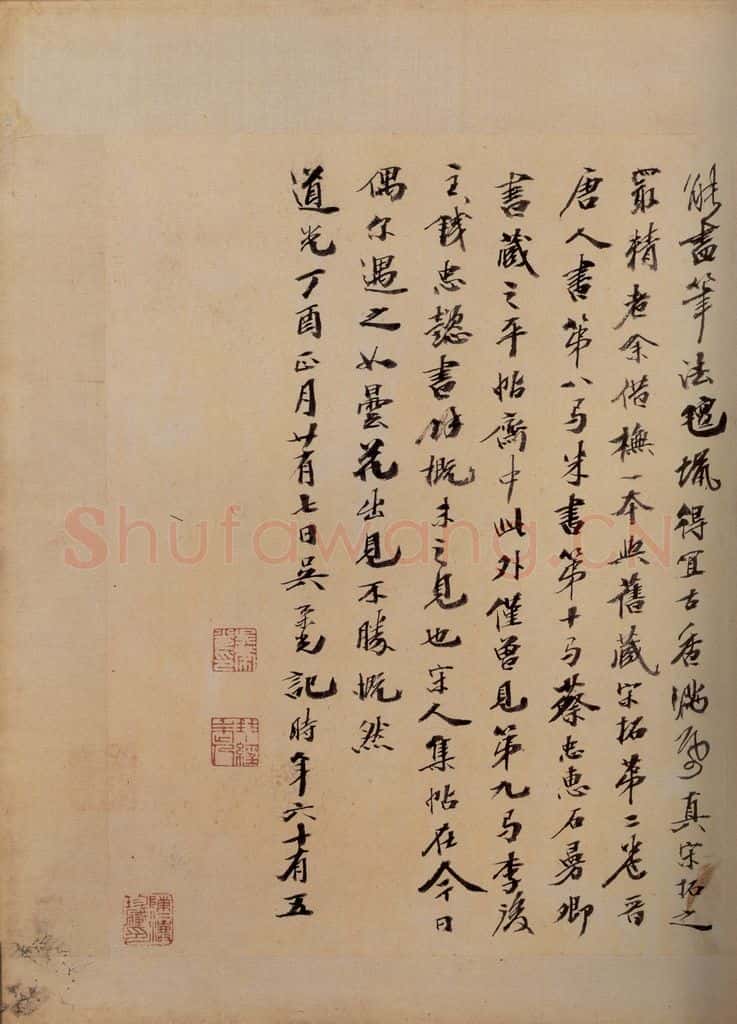 能書筆法氊蠟得宜古香滿處真宋拓之
最精者余借橅一本與舊藏宋拓第二卷晉
唐人書第八與米書第十與蔡忠惠石曼卿
書藏之平帖齋中此外僅曾見第九與李後
主錢忠懿書餘概未之見也宋人集帖在今日
偶尔遇之如曇花出見不勝慨然
道光丁酉正月廿有七日吳榮光記時年六十有五
Shufawang.CN